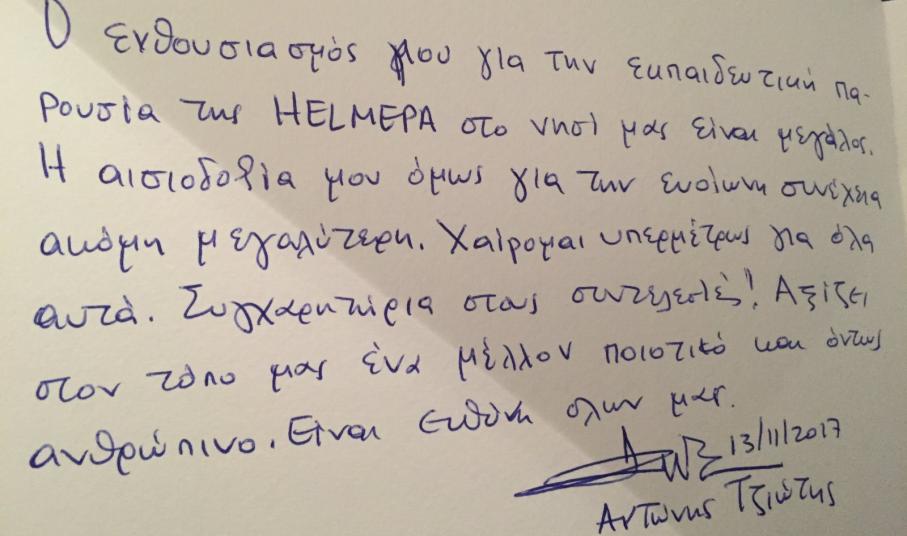 Ο ενθουσιασμός μου για την εκπαιδευτική πα-
ρουσία της HELMEPA στο νησί μας είναι μεγάλος.
Η αισιοδοξία μου όμως για την ευοίωνη συνέχεια
ακόμη μεγαλύτερη. Χαίρομαι υπερμέτρως για όλα
αυτά. Συγχαρητήρια στους συντελεστές! Αξίζει
στον τόπο μας ένα μέλλον ποιοτικό και όντως
ανθρώπινο. Είναι ευθύνη όλων μας.
13/11/2017
Αντώνης Τζιώτης